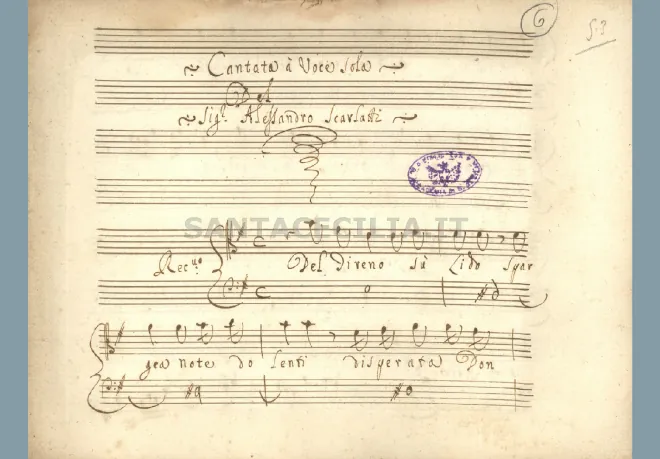 6
53
Cantata à Voce sola
Del
Sigr. Alessandro Scarlatti
SANTACECILIA.IT
Recvo.
Del Direno sù Lido Spar
gea note do lenti disperata Don